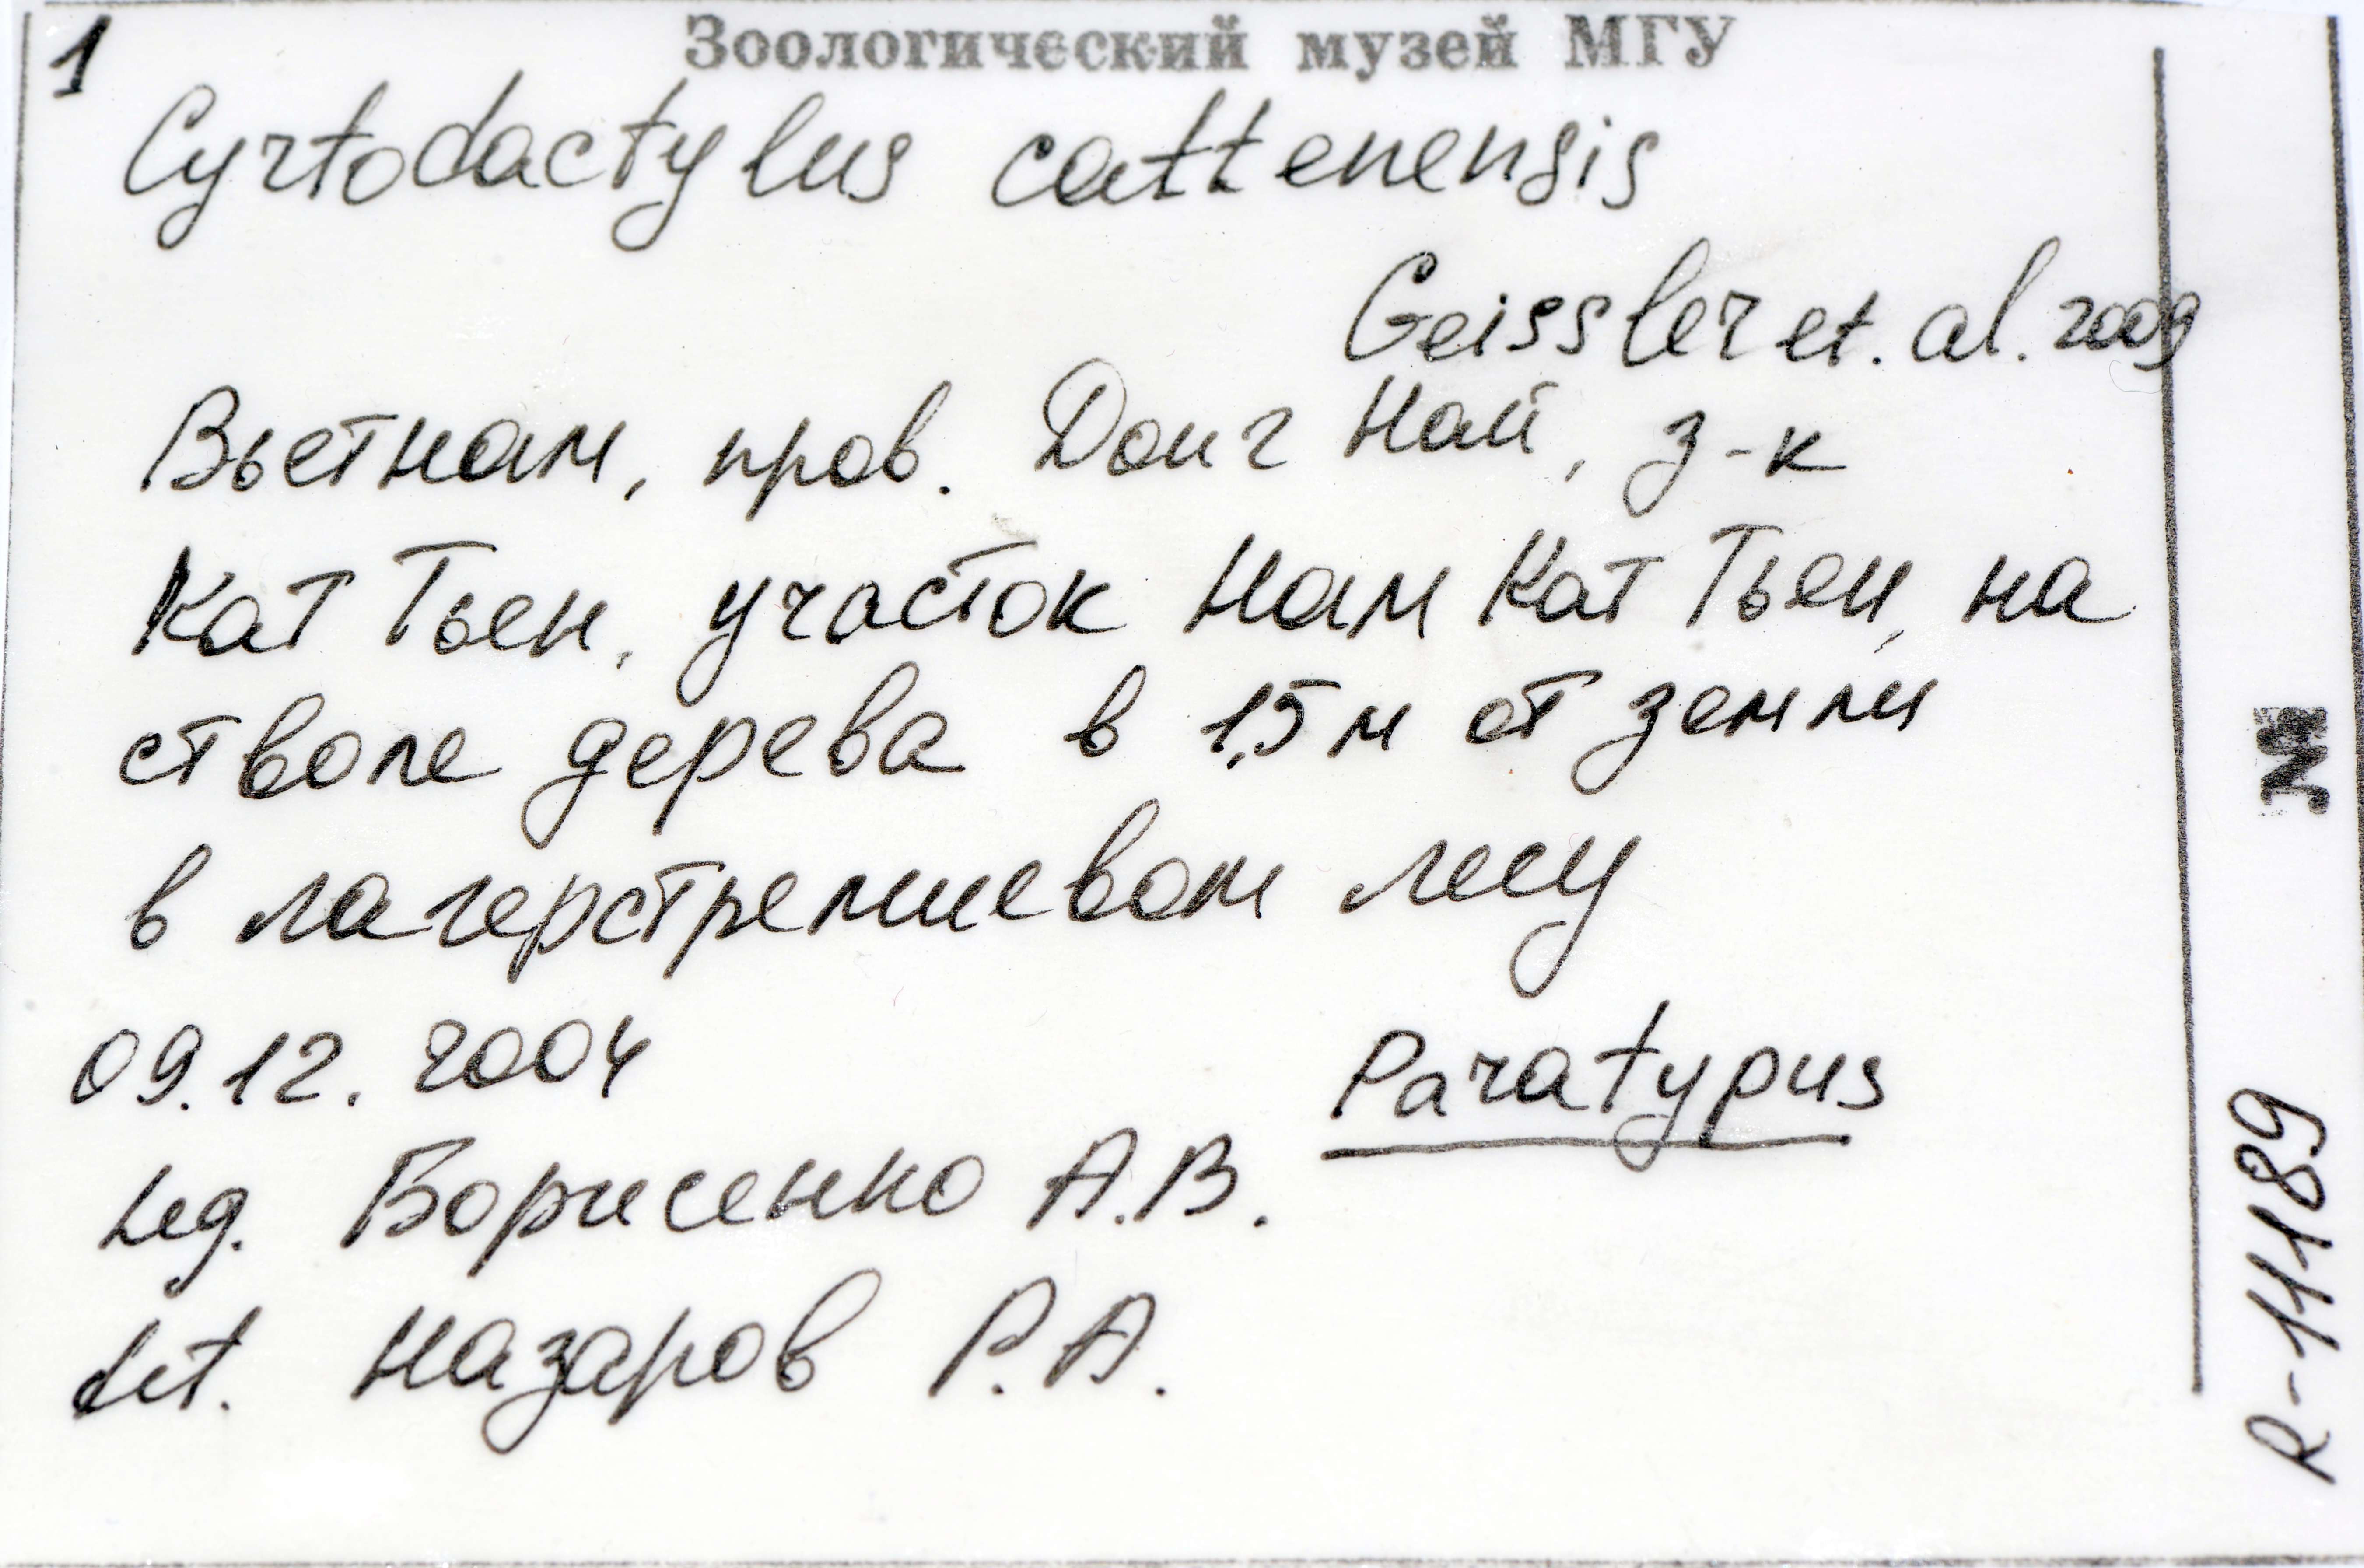 1
Зоологический музей МГУ
Cyrtodactylus cattenensis
Geissler et. al. 2009
Вьетнам, пров. Донг Най, з-к
Кат Тьен, участок Нам Кат Тьен, на
стволе дерева в 1,5 м от земли
в лагерстремиевом лесу
09.12.2004
Paratypus
Leg. Борисенко А.В.
det. Назаров Р.А.
№
R-11189